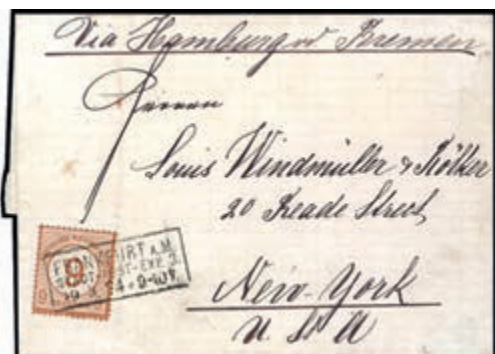 Via Hamburg or Bremen
Herren
Louis Windmüller & Rölker
20 Reade Street
New-York
U. S. A
9
FRANKFURT A.M.
9-10V.